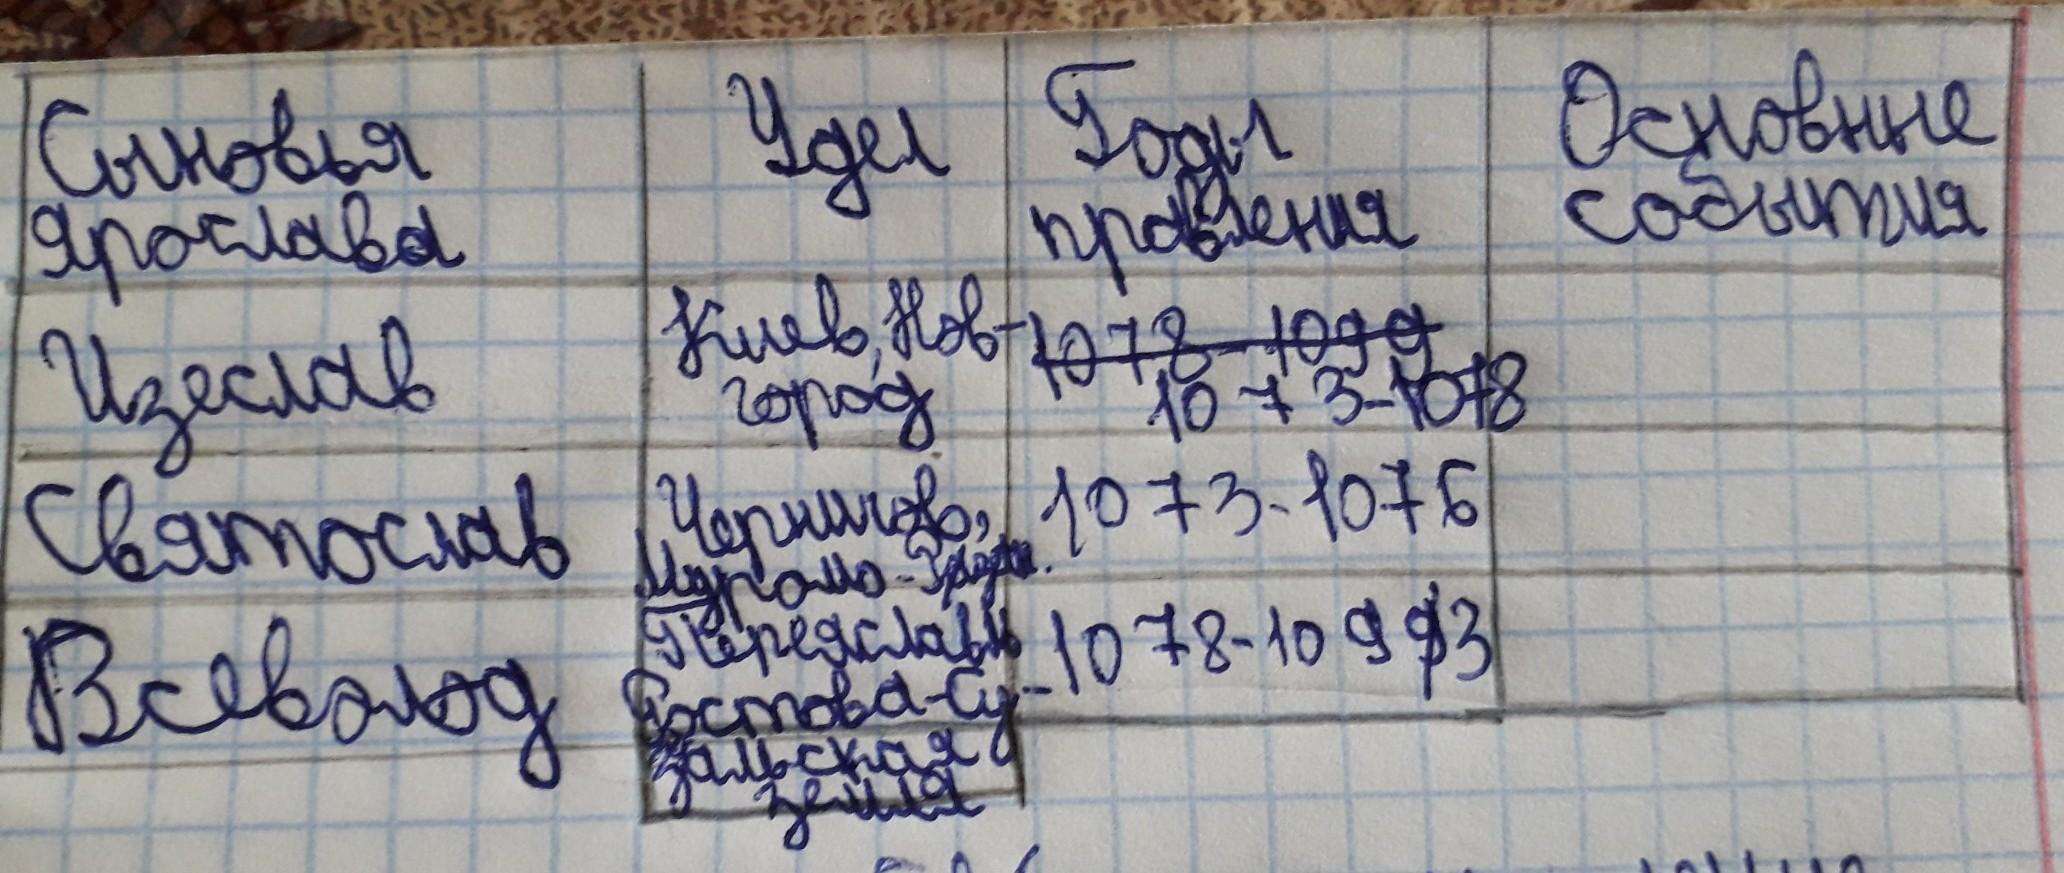 Сыновья
Ярослава
Удел
Годы
правления
Основные
события
Изеслав
Киев, Нов-
город
1078-1099
1073-1078
Святослав
Чернигов,
1073-1076
Всеволод
Переяславль
Ростова-Су-
зальская
земля
1078-1093